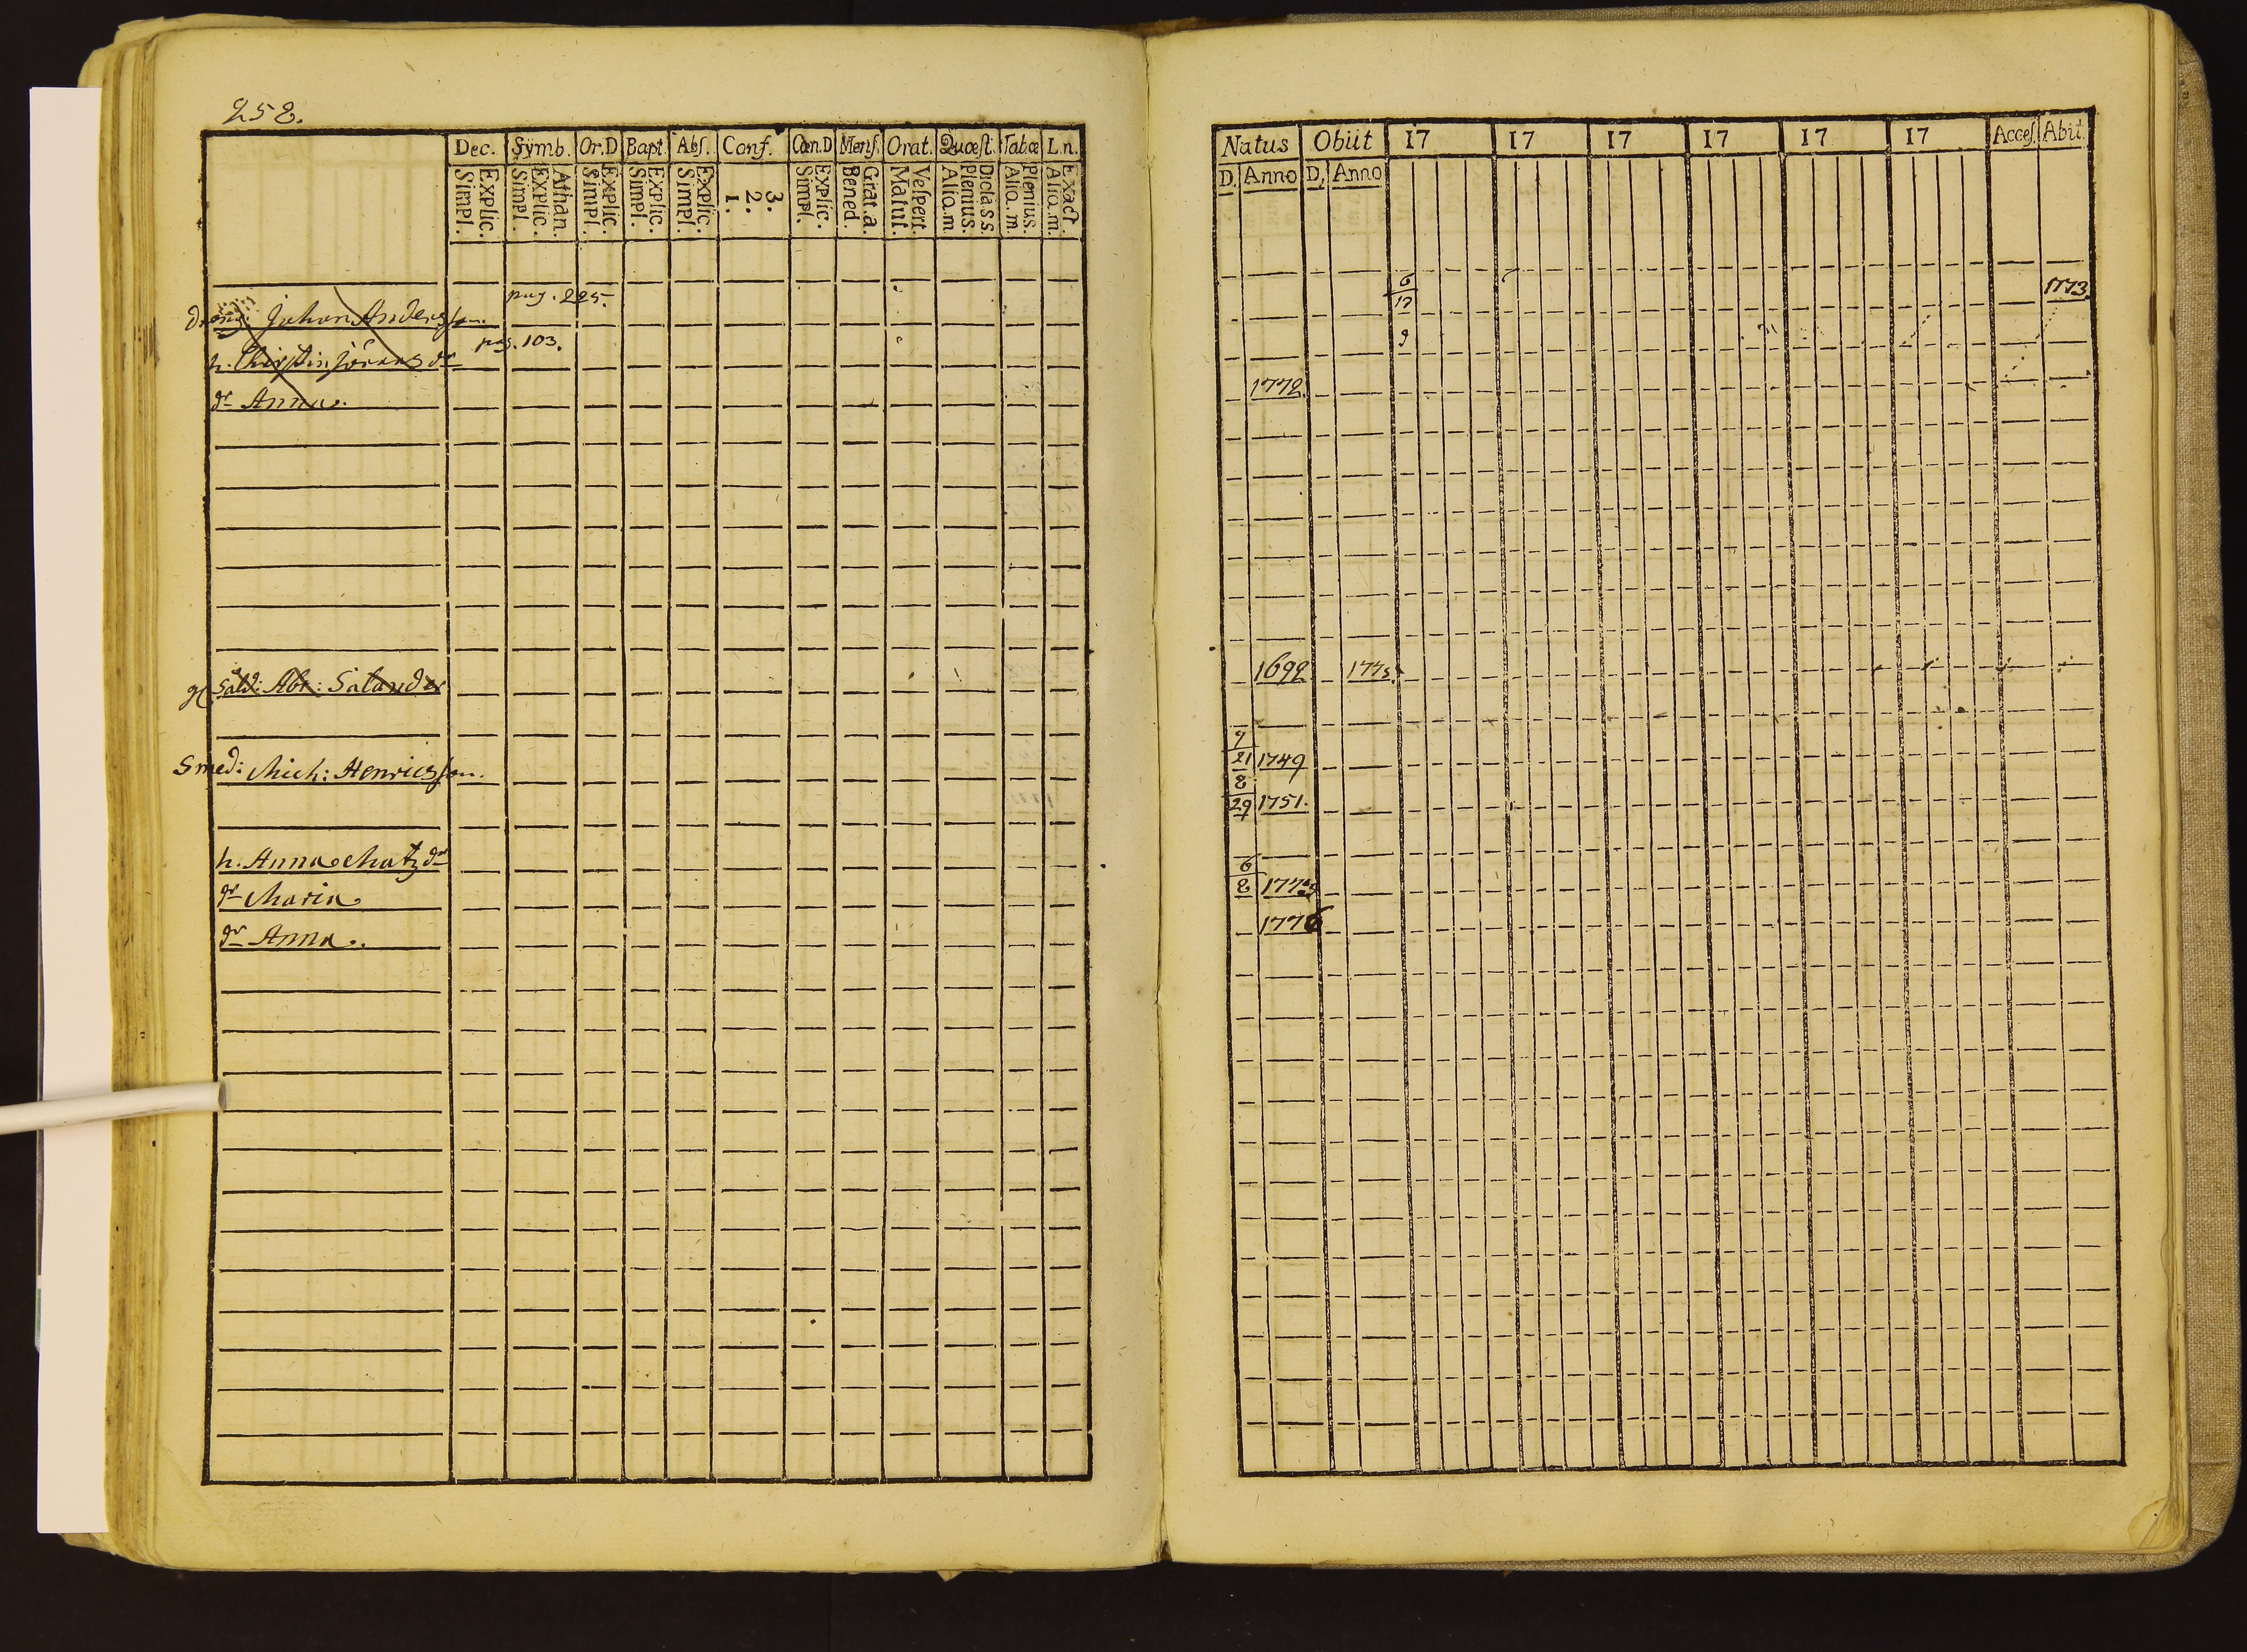 252.
Dec. Symb. Or.D Bapt. Abs. Conf. Cœn.D Mens. Orat. Quæst. Tabæ L.n.
Explic. Simpl. Athan. Explic. Simpl. Explic. Simpl. Explic. Simpl. Explic. Simpl. 3. 2. 1. Explic. Simpl. Grat.a. Bened. Vespert. Matut. Dicta S S. Plenius. Aliq.m Plenius. Aliq.m. Exact. Aliq.m.
pag. 225.
dräng. Johan Andersson
pag. 103.
h. Christin Jörans dr
dr Anna.
gl. Sald: Abr: Salander
Smed: Mich: Henricsson.
h. Anna Matz dr
dr Maria
dr Anna.
Natus Obiit 17 17 17 17 17 17 Acces. Abit.
D. Anno D. Anno
6
17
1773.
9
1772.
1692 1775.
7
21 1749
8
29 1751.
6
8 1775
1776